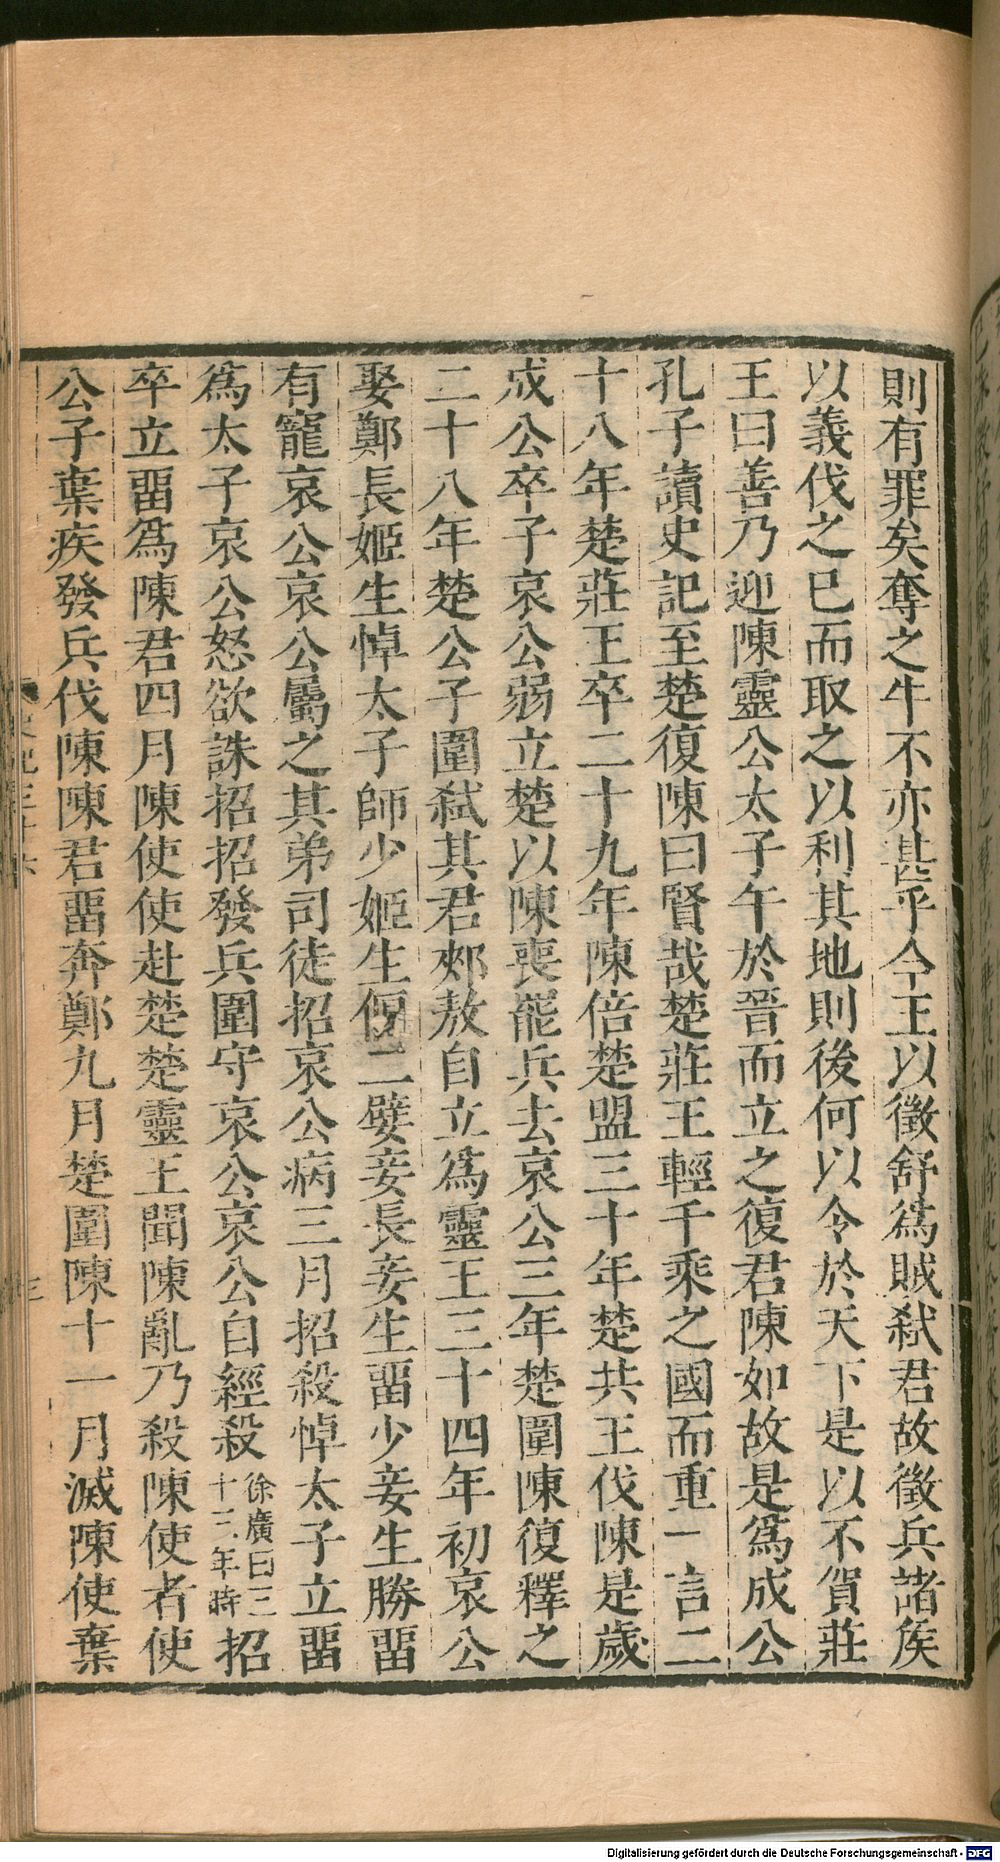 則有罪矣奪之牛不亦甚乎今王以徵舒爲賊弒君故徵兵諸侯
以義伐之已而取之以利其地則後何以令於天下是以不賀莊
王曰善乃迎陳靈公太子午於晉而立之復君陳如故是爲成公
孔子讀史記至楚復陳曰賢哉楚莊王輕千乘之國而重一言二
十八年楚莊王卒二十九年陳倍楚盟三十年楚共王伐陳是歲
成公卒子哀公弱立楚以陳喪罷兵去哀公三年楚圍陳復釋之
二十八年楚公子圍弒其君郟敖自立爲靈王三十四年初哀公
娶鄭長姬生悼太子師少姬生偃二嬖妾長妾生畱少妾生勝畱
有寵哀公哀公屬之其弟司徒招哀公病三月招殺悼太子立畱
爲太子哀公怒欲誅招招發兵圍守哀公哀公自經殺徐廣曰三十三年時招
卒立畱爲陳君四月陳使使赴楚楚靈王聞陳亂乃殺陳使者使
公子棄疾發兵伐陳陳君畱奔鄭九月楚圍陳十一月滅陳使棄
Digitalisierung gefördert durch die Deutsche Forschungsgemeinschaft - DFG